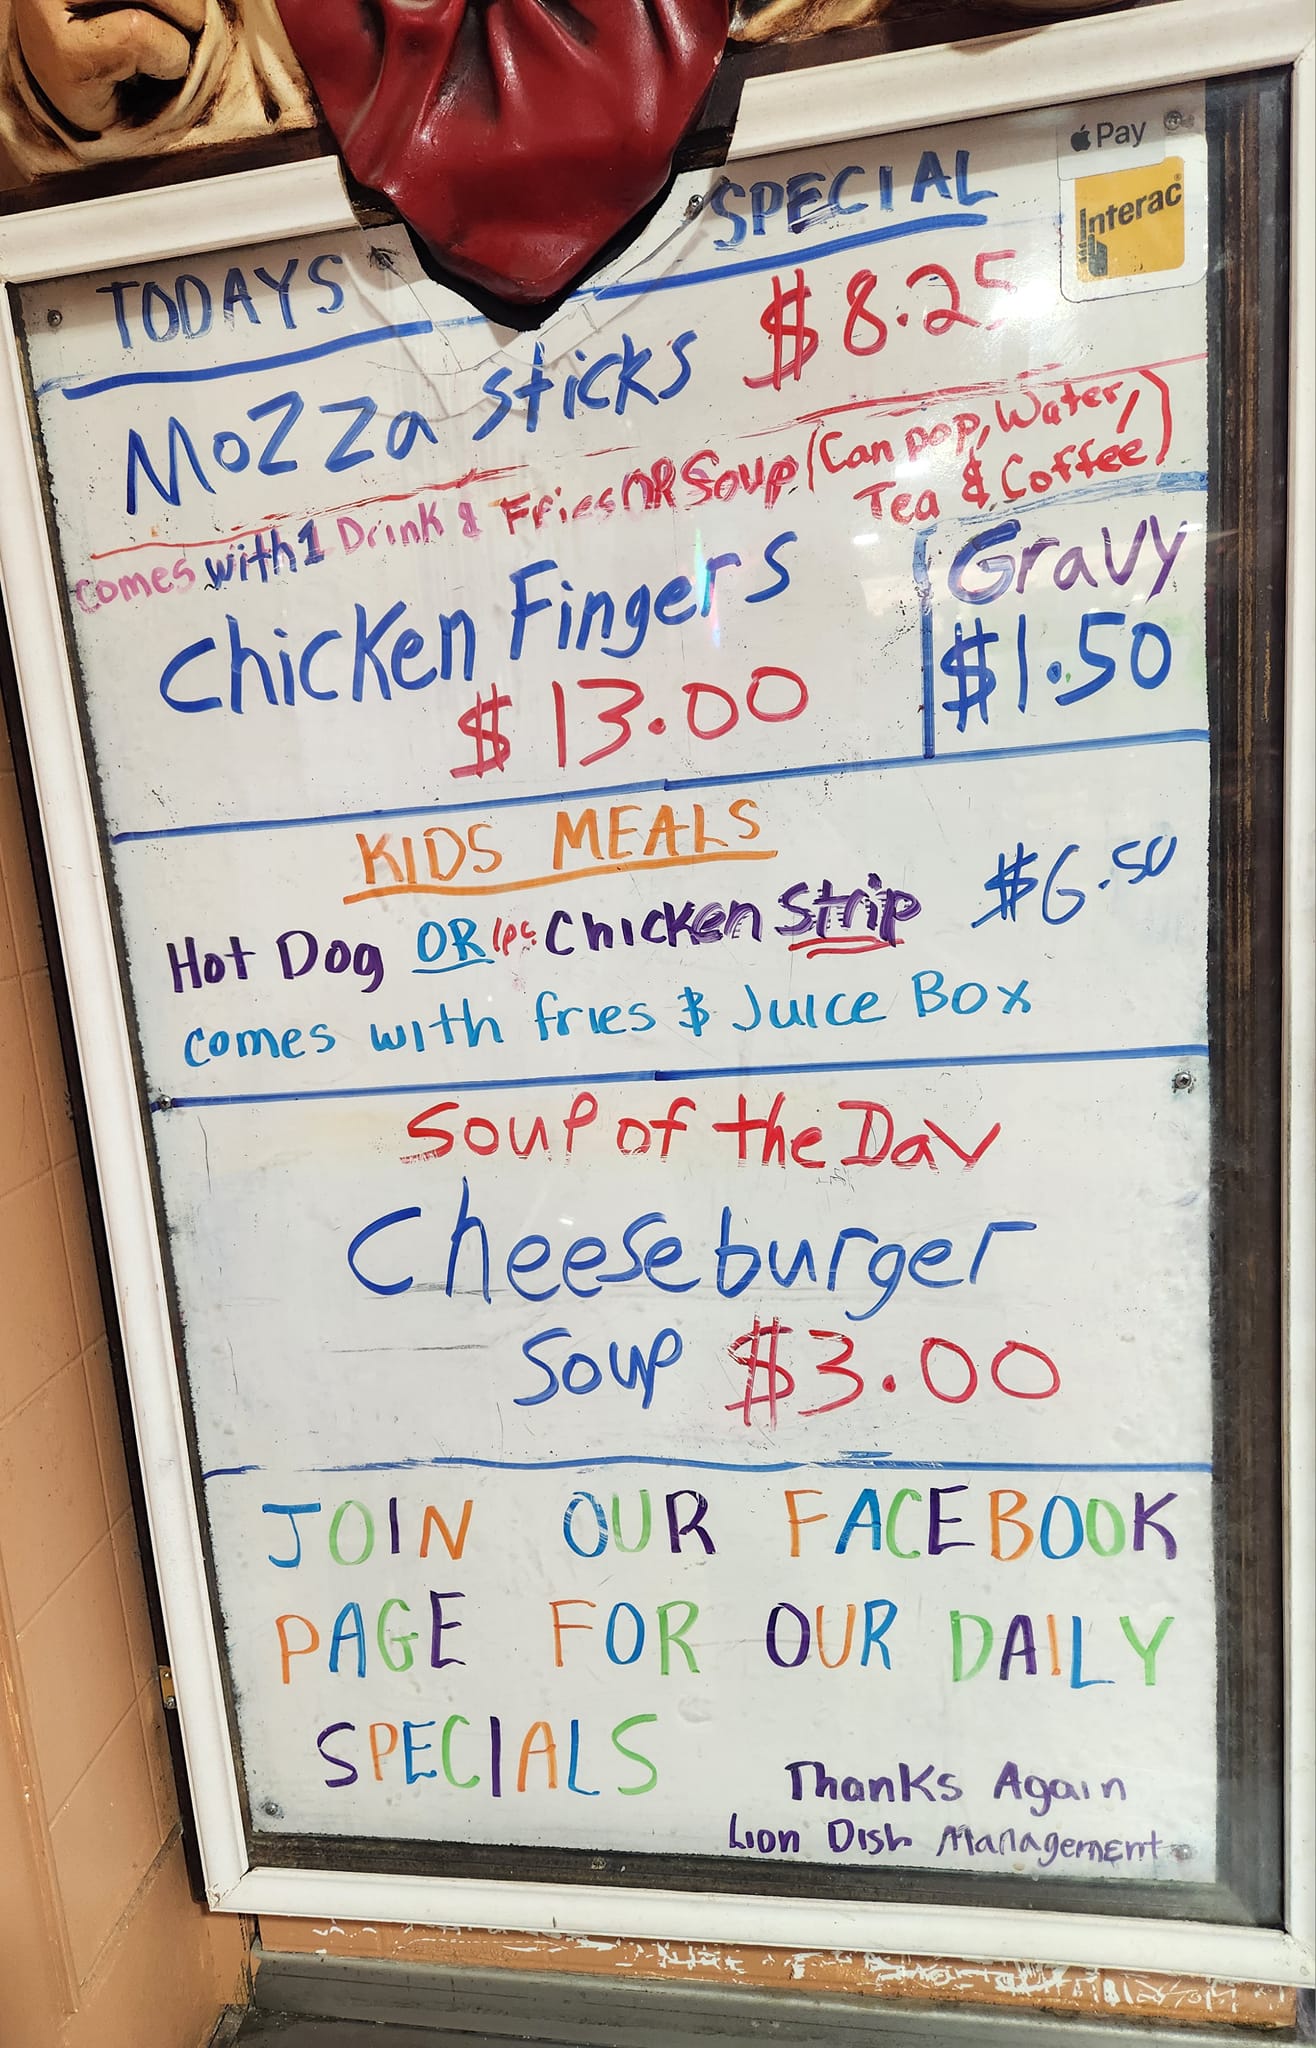 Pay
Interac®
TODAYS SPECIAL
Mozza Sticks $8.25
Comes with 1 Drink & Fries OR Soup (Can pop, Water,
Tea & Coffee)
Chicken Fingers
$13.00
Gravy
$1.50
KIDS MEALS
Hot Dog OR 1pc Chicken Strip $6.50
comes with fries & Juice Box
Soup of the Day
Cheeseburger
Soup $3.00
JOIN OUR FACEBOOK
PAGE FOR OUR DAILY
SPECIALS
Thanks Again
Lion Dish Management